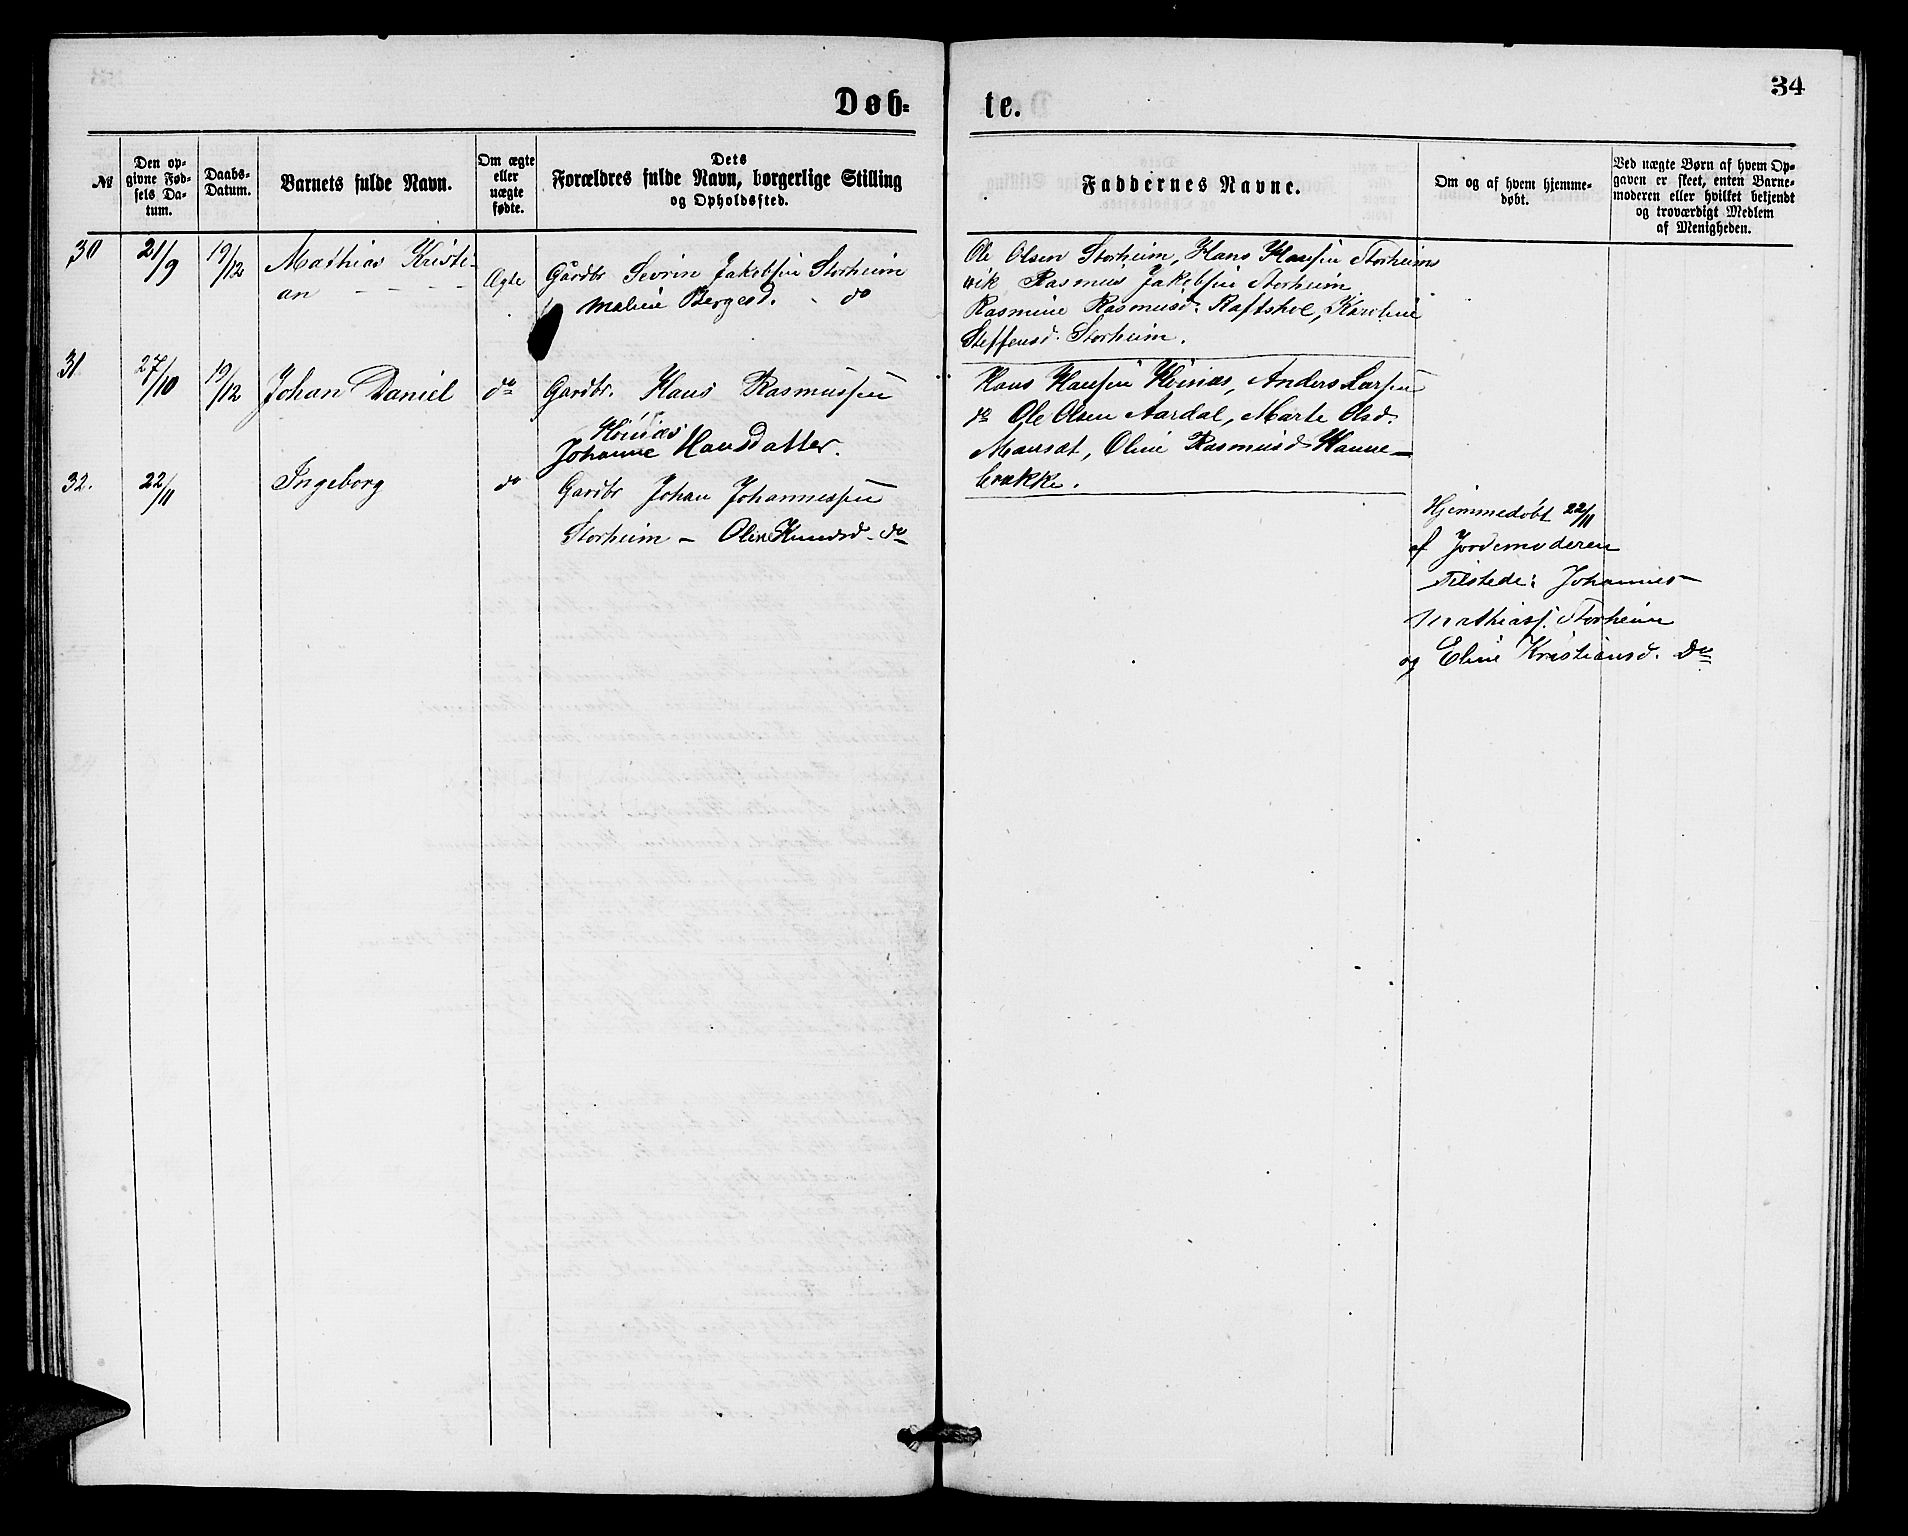 34
Døb-
te.
№
Den op-
givne Fød-
sels Da-
tum.
Daabs-
Datum.
Barnets fulde Navn.
Om ægte
eller
uægte
fødte.
Dets
Forældres fulde Navn, borgerlige Stilling
og Opholdssted.
Faddernes Navne.
Om og af hvem hjemme-
døbt.
Ved uægte Børn af hvem Op-
gaven er skeet, enten Barne-
moderen eller hvilket bekjendt
og troværdigt Medlem
af Menigheden.
30
21/9
19/12
Mathias Kristi-
an
Ægte
Gårdbr Sevrin Jakobsen Storheim
Malene Bergesd. do
Ole Olsen Storheim, Hans Hansen Storheims
vik Rasmus Jakobsen Storheim
Rasmine Rasmusd. Raftshol, Karoline
Steffensd. Storheim.
31
27/10
19/12
Johan Daniel
do
Gardbr. Hans Rasmussen
Høinæs
Johanne Hansdatter.
Hans Hansen Høinæs, Anders Larsen
do Ole Olsen Aardal, Marte Olsd.
Mansæt, Oline Rasmusd Hanne-
brække.
32.
22/11
Ingeborg
do
Gardbr Johan Johannessen
Storheim - Oline Knudsd. do
Hjemmedøbt 22/11
af Jordemoderen
Tilstede: Johannes
Mathiasf. Storheim
og Eline Kristiansd. Do